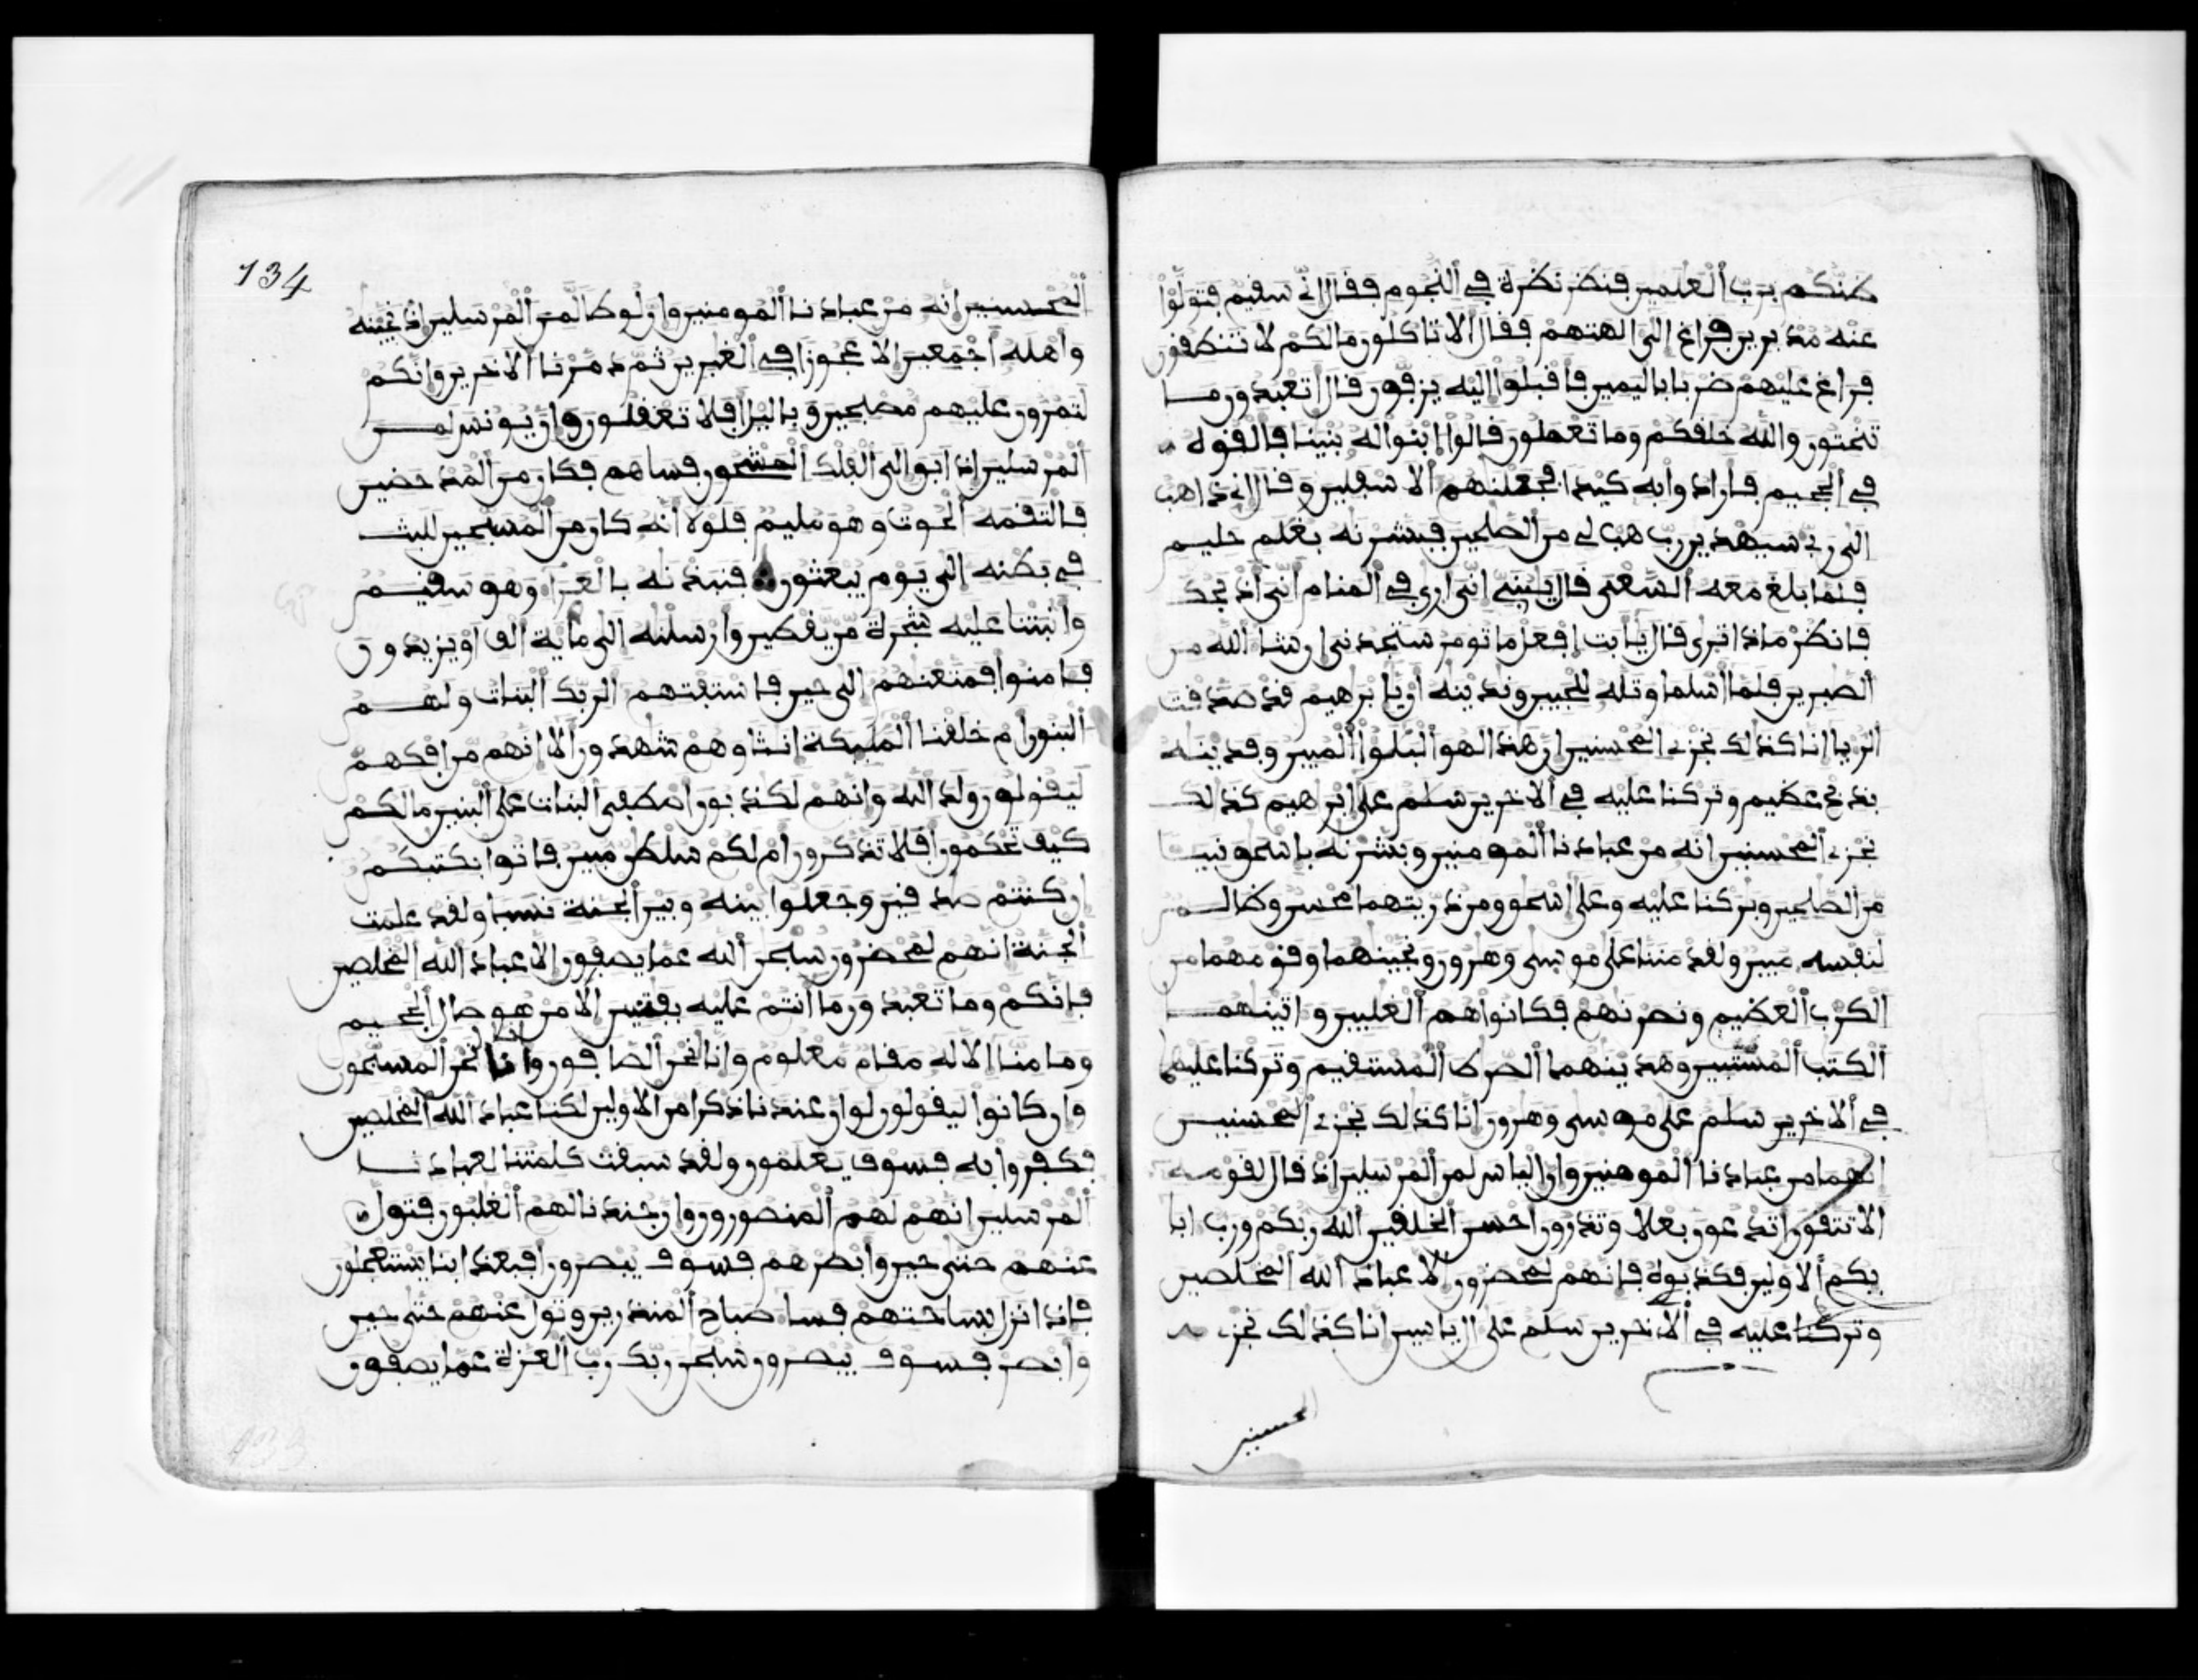 ظنكم برب العلمين فنظر نظرة في النجوم فقال اني سقيم فتولوا
عنه مدبرين فراغ الى الهتهم فقال الا تاكلون مالكم لا تنطقون
فراغ عليهم ضربا باليمين فاقبلوا اليه يزفون قال اتعبدون ما
تنحتون والله خلقكم وما تعملون قالوا ابنوا له بنينا فالقوه
في الجحيم فارادوا به كيدا فجعلنهم الاسفلين وقال اني ذاهب
الى ربي سيهدين رب هب لي من الصلحين فبشرنه بغلم حليم
فلما بلغ معه السعي قال يبني اني ارى في المنام اني اذبحك
فانظر ماذا ترى قال يابت افعل ما تومر ستجدني ان شا الله من
الصبرين فلما اسلما وتله للجبين وندينه ان يابرهيم قد صدقت
الريا انا كذلك نجزي المحسنين ان هذا لهو البلوا المبين وفدينه
بذبح عظيم وتركنا عليه في الاخرين سلم على ابرهيم كذلك
نجزي المحسنين انه من عبادنا المومنين وبشرنه باسحق نبيا
من الصلحين وبركنا عليه وعلى اسحق ومن ذريتهما محسن وظالم
لنفسه مبين ولقد مننا على موسى وهرون ونجينهما وقومهما من
الكرب العظيم ونصرنهم فكانوا هم الغلبين واتينهما
الكتب المستبين وهدينهما الصرط المستقيم وتركنا عليهما
في الاخرين سلم على موسى وهرون انا كذلك نجزي المحسنين
انهما من عبادنا المومنين وان الياس لمن المرسلين اذ قال لقومه
الا تتقون اتدعون بعلا وتذرون احسن الخلقين الله ربكم ورب ابا
يكم الاولين فكذبوه فانهم لمحضرون الا عباد الله المخلصين
وتركنا عليه في الاخرين سلم على ال ياسين انا كذلك نجزي
المحسنين
134
المحسنين انه من عبادنا المومنين وان لوطا لمن المرسلين اذ نجينه
واهله اجمعين الا عجوزا في الغبرين ثم دمرنا الاخرين وانكم
لتمرون عليهم مصبحين وباليل افلا تعقلون وان يونس لمن
المرسلين اذ ابق الى الفلك المشحون فساهم فكان من المدحضين
فالتقمه الحوت وهو مليم فلولا انه كان من المسبحين للبث
في بطنه الى يوم يبعثون فنبذنه بالعرا وهو سقيم
وانبتنا عليه شجرة من يقطين وارسلنه الى ماية الف او يزيدون
فامنوا فمتعنهم الى حين فاستفتهم الربك البنات ولهم
البنون ام خلقنا المليكة انثا وهم شهدون الا انهم من افكهم
ليقولون ولد الله وانهم لكذبون اصطفى البنات على البنين مالكم
كيف تحكمون افلا تذكرون ام لكم سلطن مبين فاتوا بكتبكم
ان كنتم صدقين وجعلوا بينه وبين الجنة نسبا ولقد علمت
الجنة انهم لمحضرون سبحن الله عما يصفون الا عباد الله المخلصين
فانكم وما تعبدون ما انتم عليه بفتنين الا من هو صال الجحيم
وما منا الا له مقام معلوم وانا لنحن الصافون وانا لنحن المسبحون
وان كانوا ليقولون لو ان عندنا ذكرا من الاولين لكنا عباد الله المخلصين
فكفروا به فسوف يعلمون ولقد سبقت كلمتنا لعبادنا
المرسلين انهم لهم المنصورون وان جندنا لهم الغلبون فتول
عنهم حتى حين وابصرهم فسوف يبصرون افبعذابنا يستعجلون
فاذا نزل بساحتهم فسا صباح المنذرين وتول عنهم حتى حين
وابصر فسوف يبصرون سبحن ربك رب العزة عما يصفون